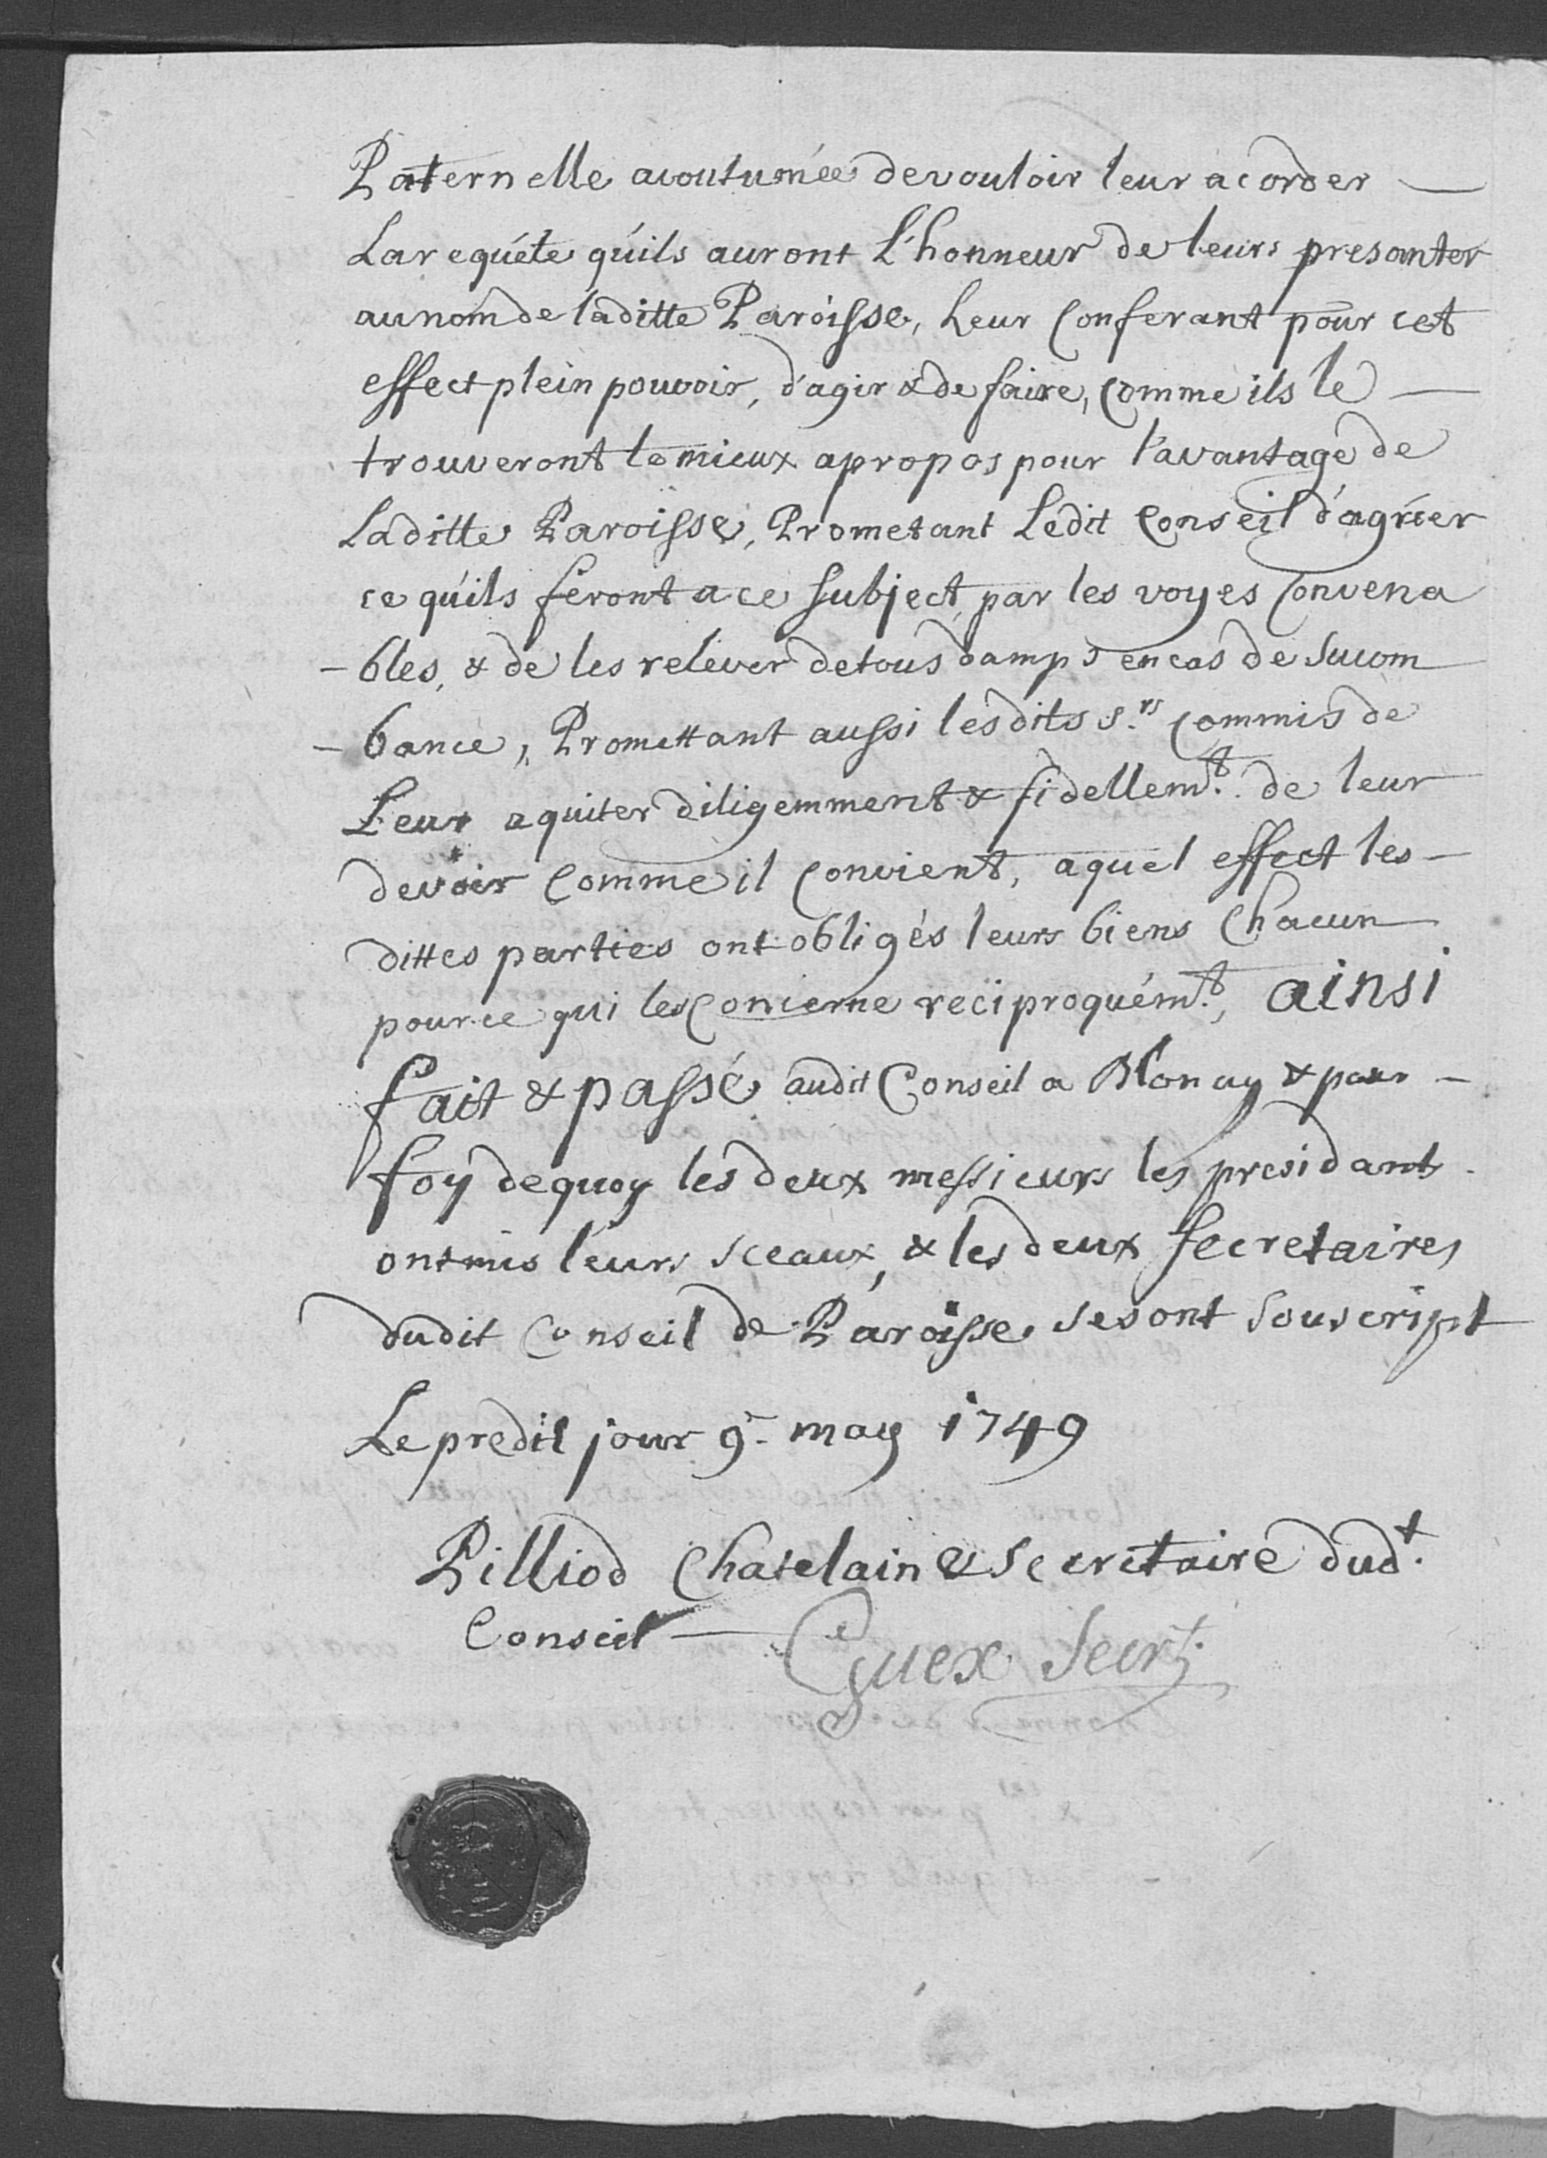 Paternelle acoutumée de vouloir leur acorder —
La requéte qu'ils auront L'honneur de leurs presanter
au nom de laditte Paroisse, Leur Conferant pour cet
effect plein pouvoir, d'agir & de faire, comme ils le —
trouveront le mieux a propos pour l'avantage de
Laditte Paroisse, Prometant Ledit Conseil d'agréer
ce qu'ils feront a ce Subject par les voyes Convena
- bles, & de les relever de tous damps en cas de Sucom
- bance, Promettant aussi lesdits S.rs Commis de
Leur aquiter diligemment & fidellem.t de leur
devoir Comme il Convient, a quel effect les -
dittes parties ont obligés leurs biens Chacun
pour ce qui les Concerne reciproquém.t, ainsi
fait & passé audit Conseil a Blonay & pour -
foy de quoy les deux messieurs les presidants
ont mis leurs Sceaux, & les deux Secretaires
dudit Conseil de Paroisse se sont Souscript
Le predit jour 9.e may 1749
Pilliod Chatelain & Secretaire dud.t
Conseil —
Guex Secr.t